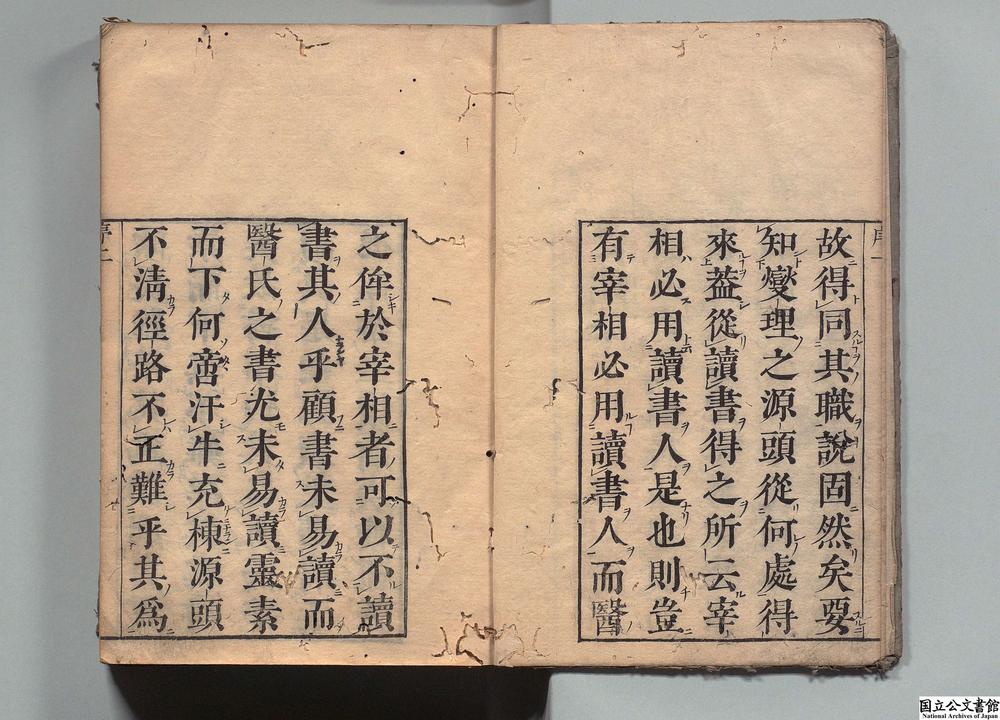 故得同其職說固然矣要
知燮理之源頭從何處得
來葢從讀書得之所云宰
相必用讀書人是也則豈
有宰相必用讀書人而醫
之侔於宰相者可以不讀
書其人乎顧書未易讀而
醫氏之書尤未易讀靈素
而下何啻汗牛充棟源頭
不淸徑路不正難乎其爲
国立公文書館
National Archives of Japan